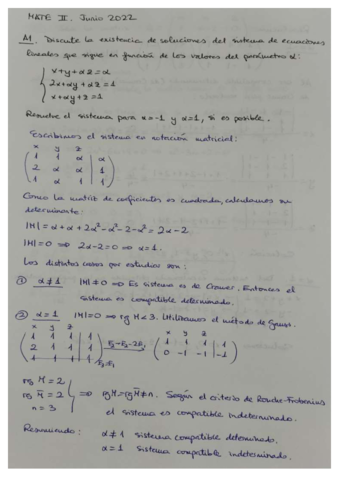 MATE II. Junio 2022
A1. Discute la existencia de soluciones del sistema de ecuaciones
lineales que sigue en función de los valores del parámetro α:
x+y+αz=α
2x+αy+αz=1
x+αy+z=1
Resuelve el sistema para α=-1 y α=1, si es posible.
Escribimos el sistema en notación matricial:
x y z
1 1 α | α
2 α α | 1
1 α 1 | 1
Como la matriz de coeficientes es cuadrada, calculamos su
determinante:
|M| = α+α+2α²-α²-2-α² = 2α-2
|M|=0 ⇒ 2α-2=0 ⇒ α=1.
Los distintos casos por estudiar son:
① α≠1 |M|≠0 ⇒ Es sistema es de Cramer. Entonces el
sistema es compatible determinado.
② α=1 |M|=0 ⇒ rg M<3. Utilizamos el método de Gauss.
x y z x y z
1 1 1 | 1
2 1 1 | 1 F2-2F1 1 1 1 | 1
1 1 1 | 1 F3-F1 0 -1 -1 | -1
rg M = 2
rg M̄ = 2 ⇒ rgM=rgM̄≠n. Según el criterio de Rouché-Frobenius
n = 3 el sistema es compatible indeterminado.
Resumiendo: α≠1 sistema compatible determinado.
α=1 sistema compatible indeterminado.